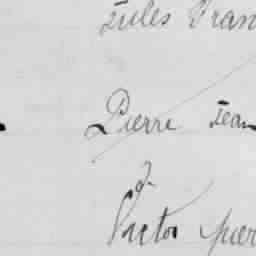 Jules Fran
Pierre Jean
Victor Pier